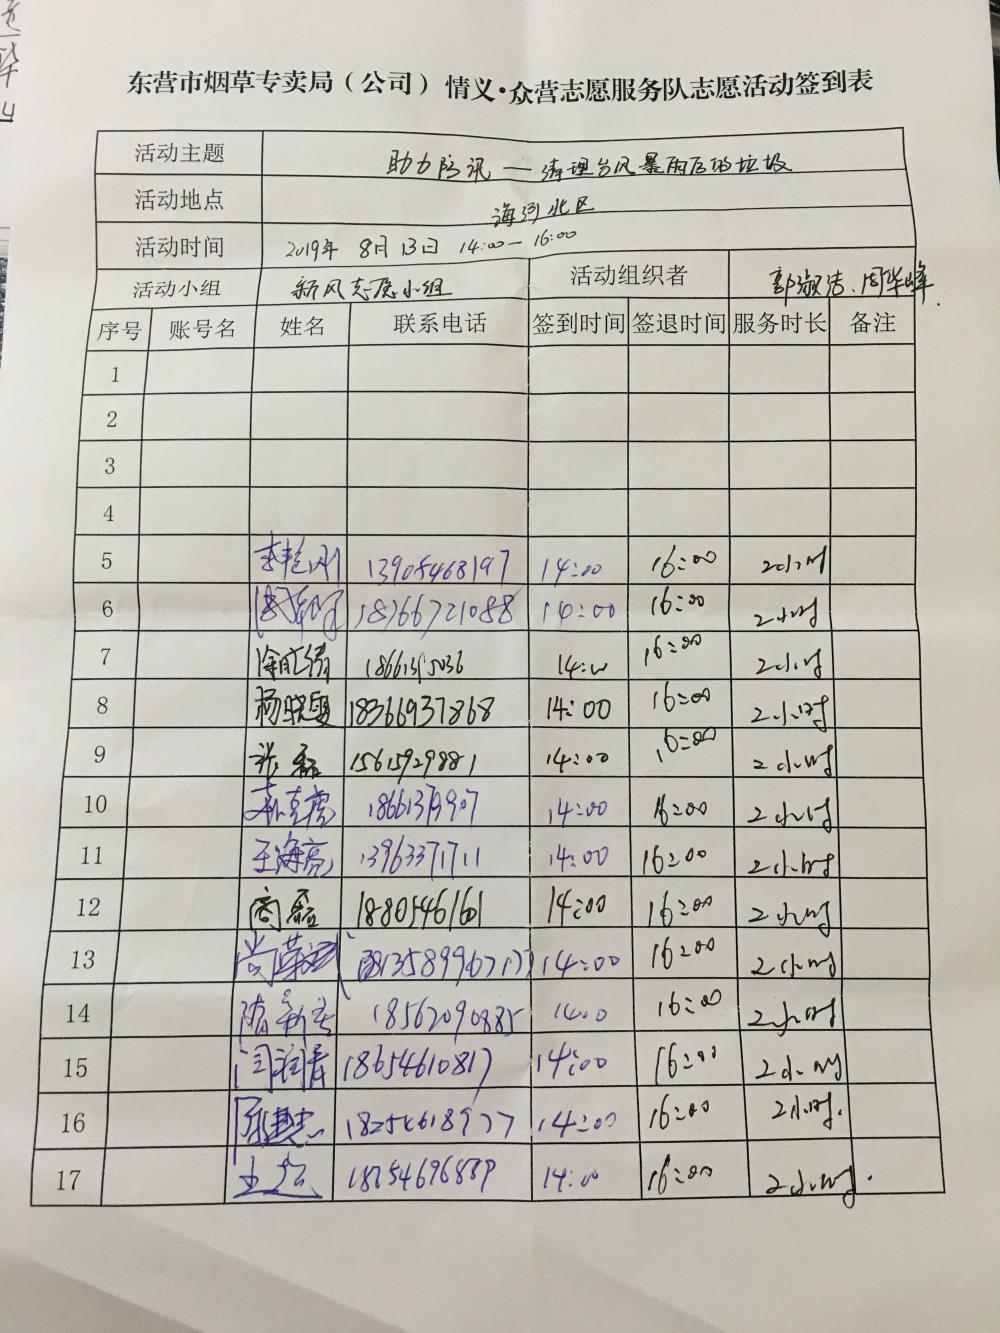 东营市烟草专卖局（公司）情义·众营志愿服务队志愿活动签到表
活动主题 助力防汛—清理台风暴雨后的垃圾
活动地点 海河北区
活动时间 2019年 8月13日 14:00—16:00
活动小组 新风志愿小组 活动组织者 郭淑洁、周华峰
序号 账号名 姓名 联系电话 签到时间 签退时间 服务时长 备注
1
2
3
4
5 13905468197 14:00 16:00 2小时
6 18366721088 14:00 16:00 2小时
7 16:00 2小时
8 杨晓霞 18366937868 14:00 16:00 2小时
9 张磊 15615929881 14:00 16:00 2小时
10 14:00 16:00 2小时
11 王海亮 13963371711 14:00 16:00 2小时
12 商磊 14:00 16:00 2小时
13 14:00 16:00 2小时
14 隋新春 18562090885 16:00 2小时
15 闫润青 18654610817 14:00 16:00 2小时
16 18254618977 14:00 16:00 2小时.
17 14:00 16:00 2小时.